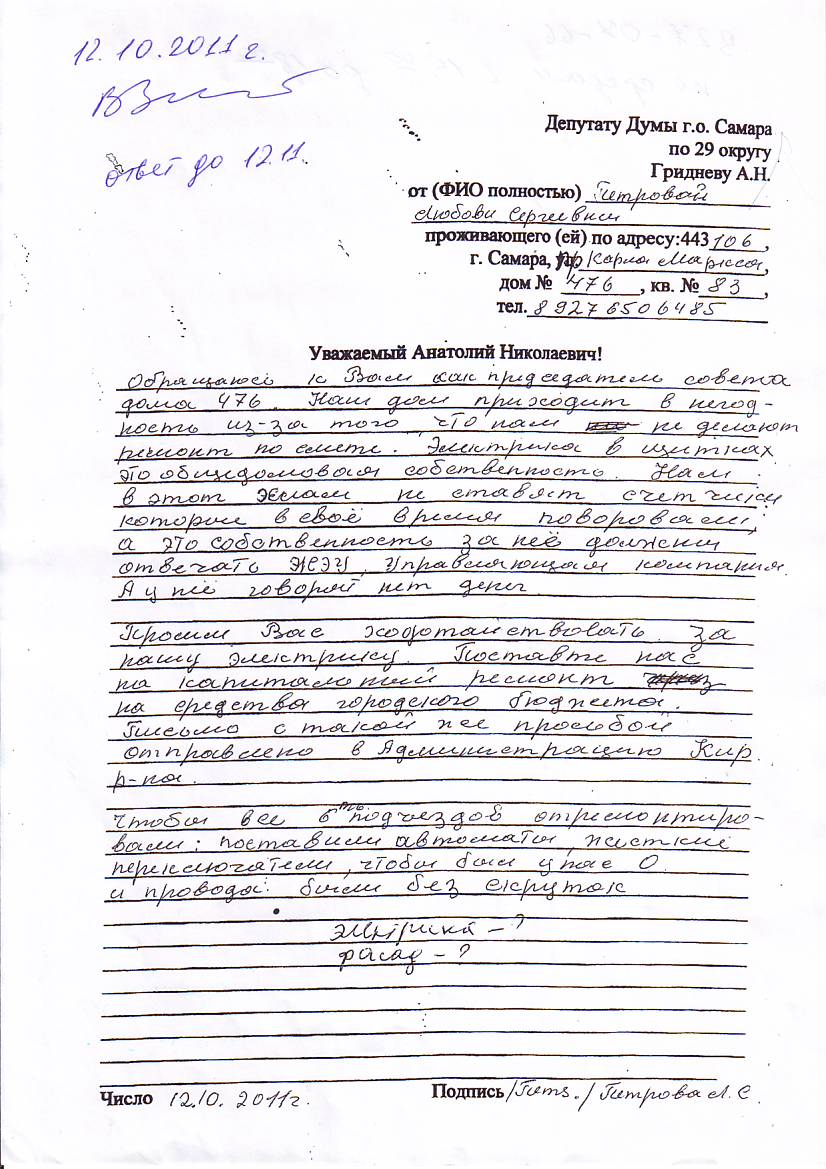 12.10.2011 г.
ответ до 12.11.
Депутату Думы г.о. Самара
по 29 округу
Гридневу А.Н.
от (ФИО полностью) Петровой
Любови Сергеевны
проживающего (ей) по адресу:443106,
г. Самара, пр. Карла Маркса,
дом № 476, кв. № 83,
тел. 89276506485
Уважаемый Анатолий Николаевич!
Обращаюсь к Вам как придседатель совета
дома 476. Наш дом приходит в негод-
ность из-за того, что нам не делают
ремонт по смете. Электрика в щитках
это общедомовая собственность. Нам
в этот не ставят счетчики
которые в своё время поворовали,
а это собственность за неё должны
отвечать ЖЭУ, Управляющая компания.
А у неё говорят нет денег.
Просим Вас ходотайствовать за
нашу электрику. Поставте нас
на капитальный ремонт
на средства городского бюджета.
Письмо с такой же просьбой
отправлено в Администрацию Кир.
р-на.
Чтобы все 6ть подъездов отремонтиро-
вали: поставили автоматы, жесткие
переключатели, чтобы был у нас О.
и провода были без скруток
электрика - ?
фасад - ?
Число 12.10. 2011г.
Подпись /Петр. / Петрова Л.С.